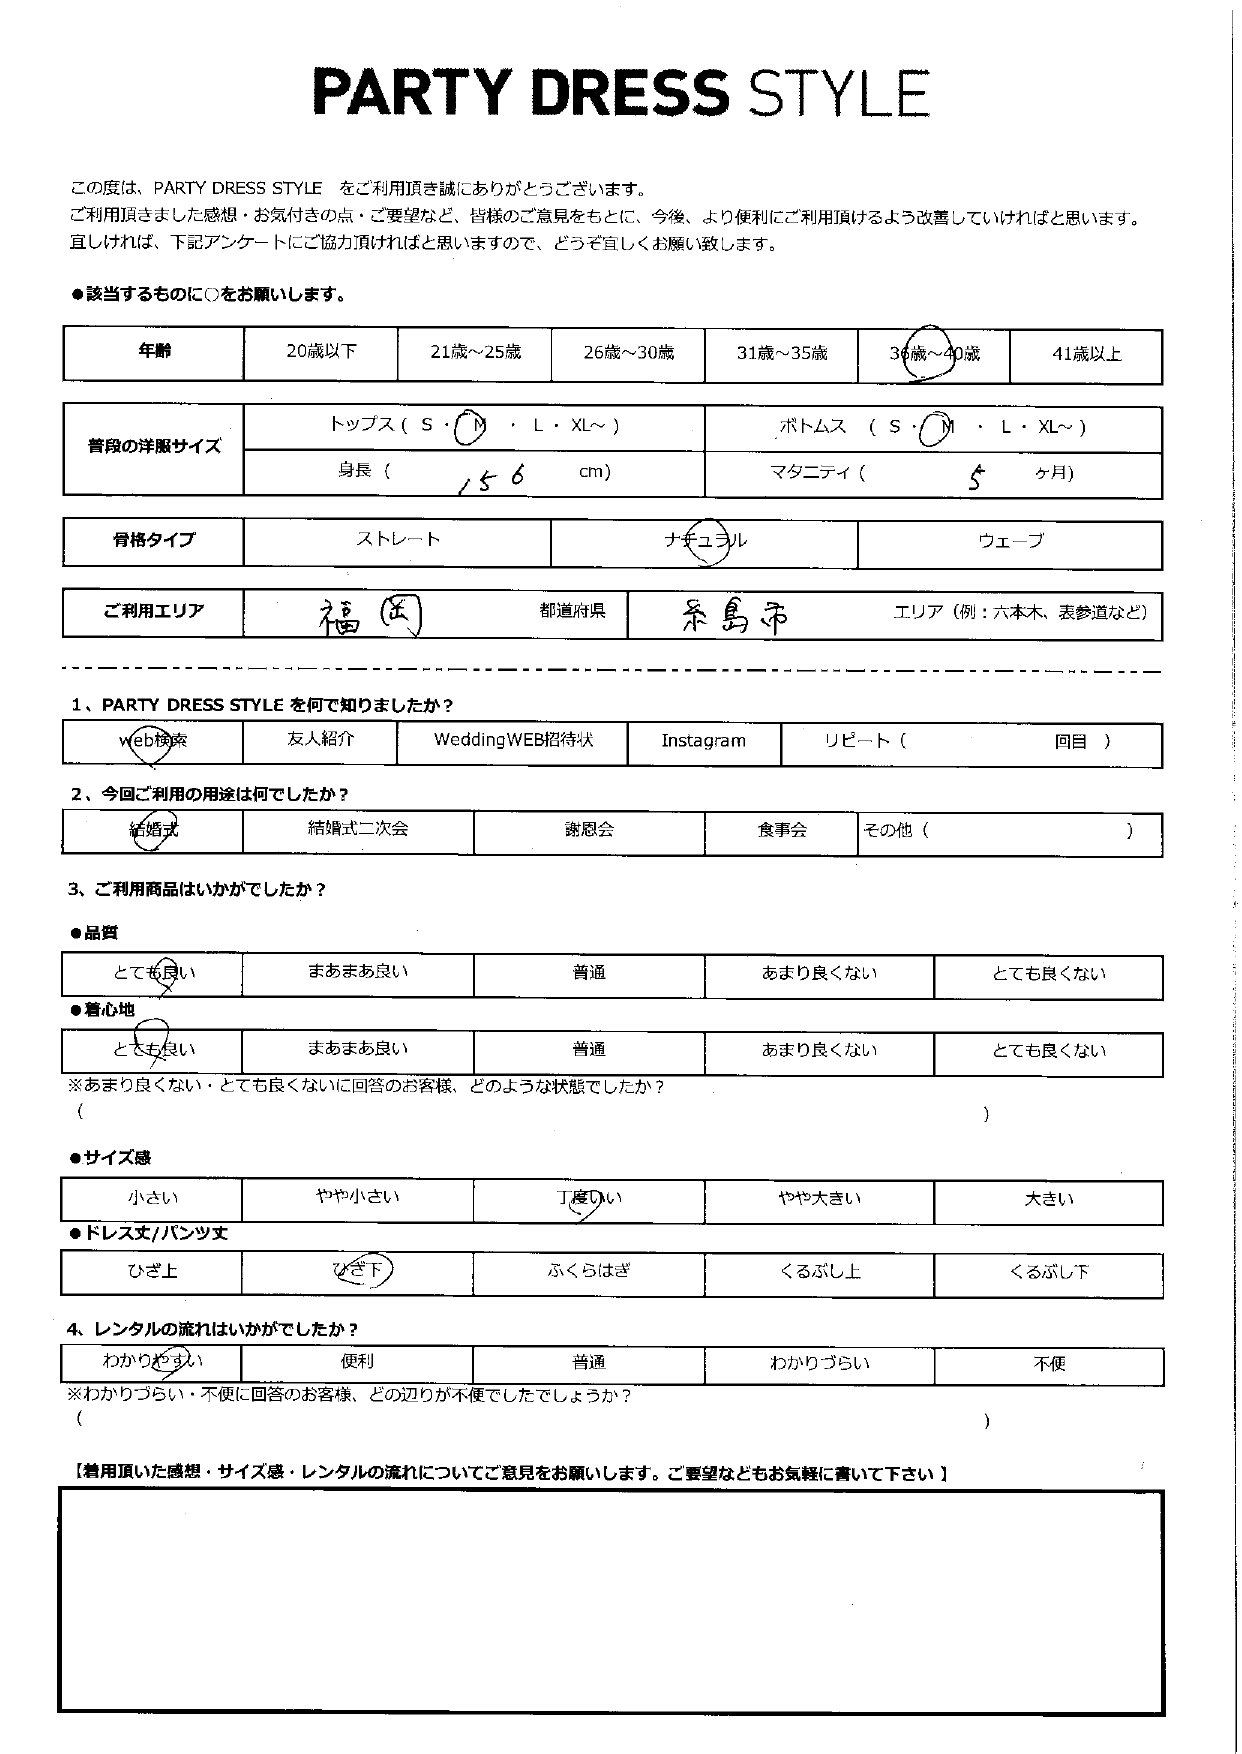 PARTY DRESS STYLE
この度は、PARTY DRESS STYLE をご利用頂き誠にありがとうございます。
ご利用頂きました感想・お気付きの点・ご要望など、皆様のご意見をもとに、今後、より便利にご利用頂けるよう改善していければと思います。
宜しければ、下記アンケートにご協力頂ければと思いますので、どうぞ宜しくお願い致します。
●該当するものに○をお願いします。
年齢 20歳以下 21歳～25歳 26歳～30歳 31歳～35歳 36歳～40歳 41歳以上
普段の洋服サイズ トップス ( S ・ M ・ L ・ XL～ ) ボトムス ( S ・ M ・ L ・ XL～ )
身長 ( 156 cm) マタニティ ( 5 ヶ月)
骨格タイプ ストレート ナチュラル ウェーブ
ご利用エリア 福岡 都道府県 糸島市 エリア（例：六本木、表参道など）
1、PARTY DRESS STYLE を何で知りましたか？
web検索 友人紹介 WeddingWEB招待状 Instagram リピート ( 回目 )
2、今回ご利用の用途は何でしたか？
結婚式 結婚式二次会 謝恩会 食事会 その他 ( )
3、ご利用商品はいかがでしたか？
●品質
とても良い まあまあ良い 普通 あまり良くない とても良くない
●着心地
とても良い まあまあ良い 普通 あまり良くない とても良くない
※あまり良くない・とても良くないに回答のお客様、どのような状態でしたか？
( )
●サイズ感
小さい やや小さい 丁度いい やや大きい 大きい
●ドレス丈/パンツ丈
ひざ上 ひざ下 ふくらはぎ くるぶし上 くるぶし下
4、レンタルの流れはいかがでしたか？
わかりやすい 便利 普通 わかりづらい 不便
※わかりづらい・不便に回答のお客様、どの辺りが不便でしたでしょうか？
( )
【着用頂いた感想・サイズ感・レンタルの流れについてご意見をお願いします。ご要望などもお気軽に書いて下さい 】